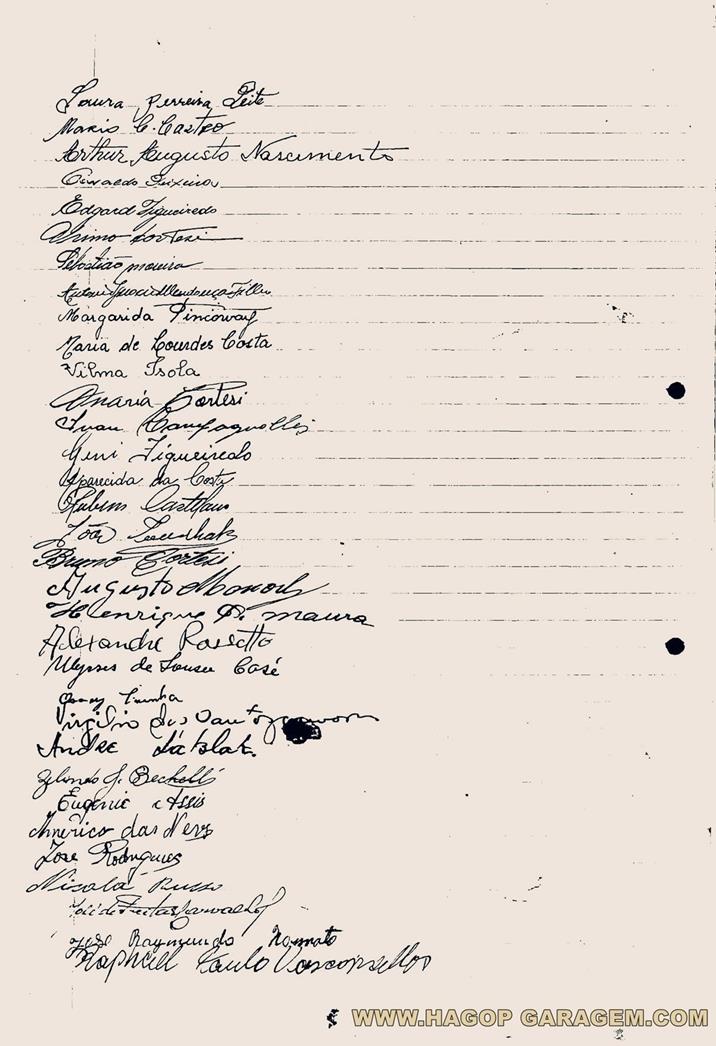 Laura Ferreira Leite
Mario C. Castro
Arthur Augusto Nascimento
Oswaldo Teixeira
Edgard Figueiredo
Cortesi
Sebastião moreira
Antonio Filho
Margarida
Maria de Lourdes Costa
Vilma Isola
Maria Cortesi
Campagnolli
Figueiredo
Aparecida da Costa
Rubens
João
Bruno Cortesi
Augusto
Henrique P. maura
Alexandre Rossetto
Ulysses de Souza Casé
Cunha
Virgilio dos Santos
Andre
J. Bechelli
Eugenie Assis
Americo das Neves
José Rodrigues
Nicola Russo
José de Freitas Carvalho
José Raymundo Nonnato
Raphael Paulo Vasconsellos
WWW.HAGOP GARAGEM.COM